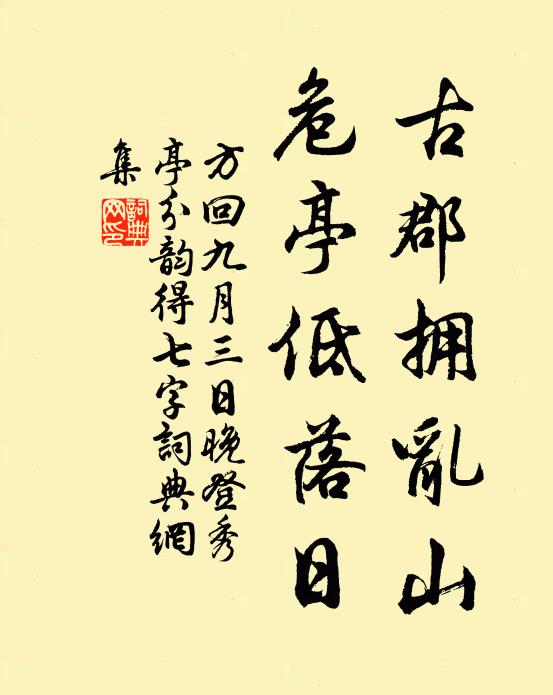 古郡拥亂山
危亭低落日
方回九月三日晚登秀
亭分韵得七字詞典網
集
詞典網印